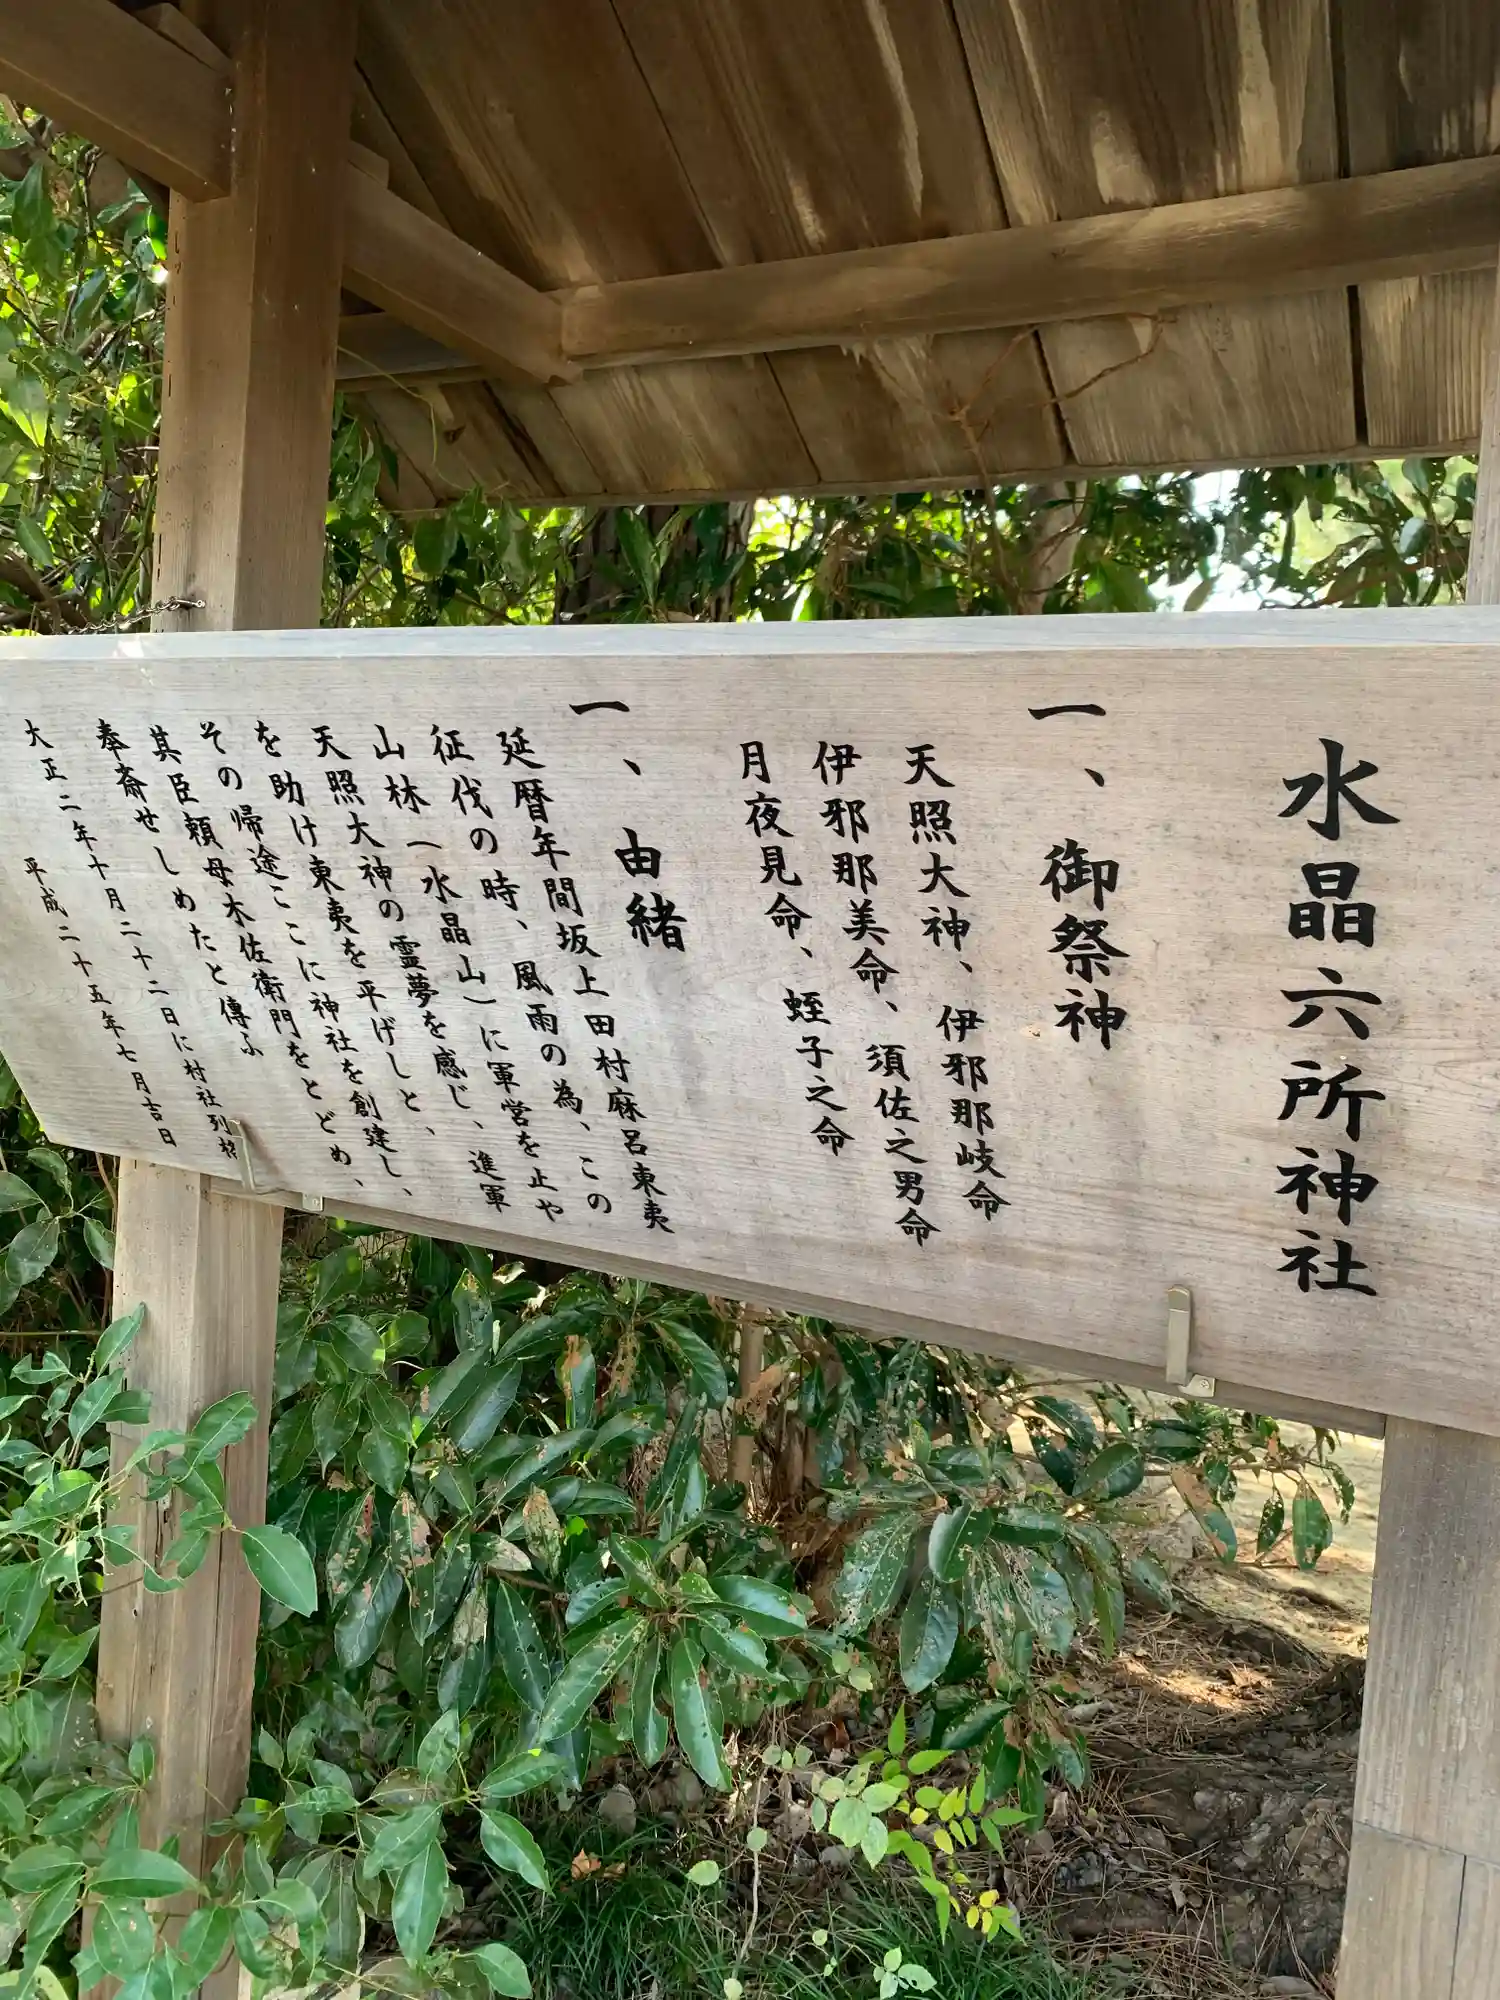 水晶六所神社
一、御祭神
天照大神、伊邪那岐命
伊邪那美命、須佐之男命
月夜見命、蛭子之命
一、由緒
延暦年間坂上田村麻呂東夷
征伐の時、風雨の為、この
山林（水晶山）に軍営を止や
天照大神の霊夢を感じ、進軍
を助け東夷を平げしと、
その帰途ここに神社を創建し、
其臣頼母木佐衛門をとどめ、
奉斎せしめたと傳ふ
大正二年十月二十二日に村社列格
平成二十五年七月吉日